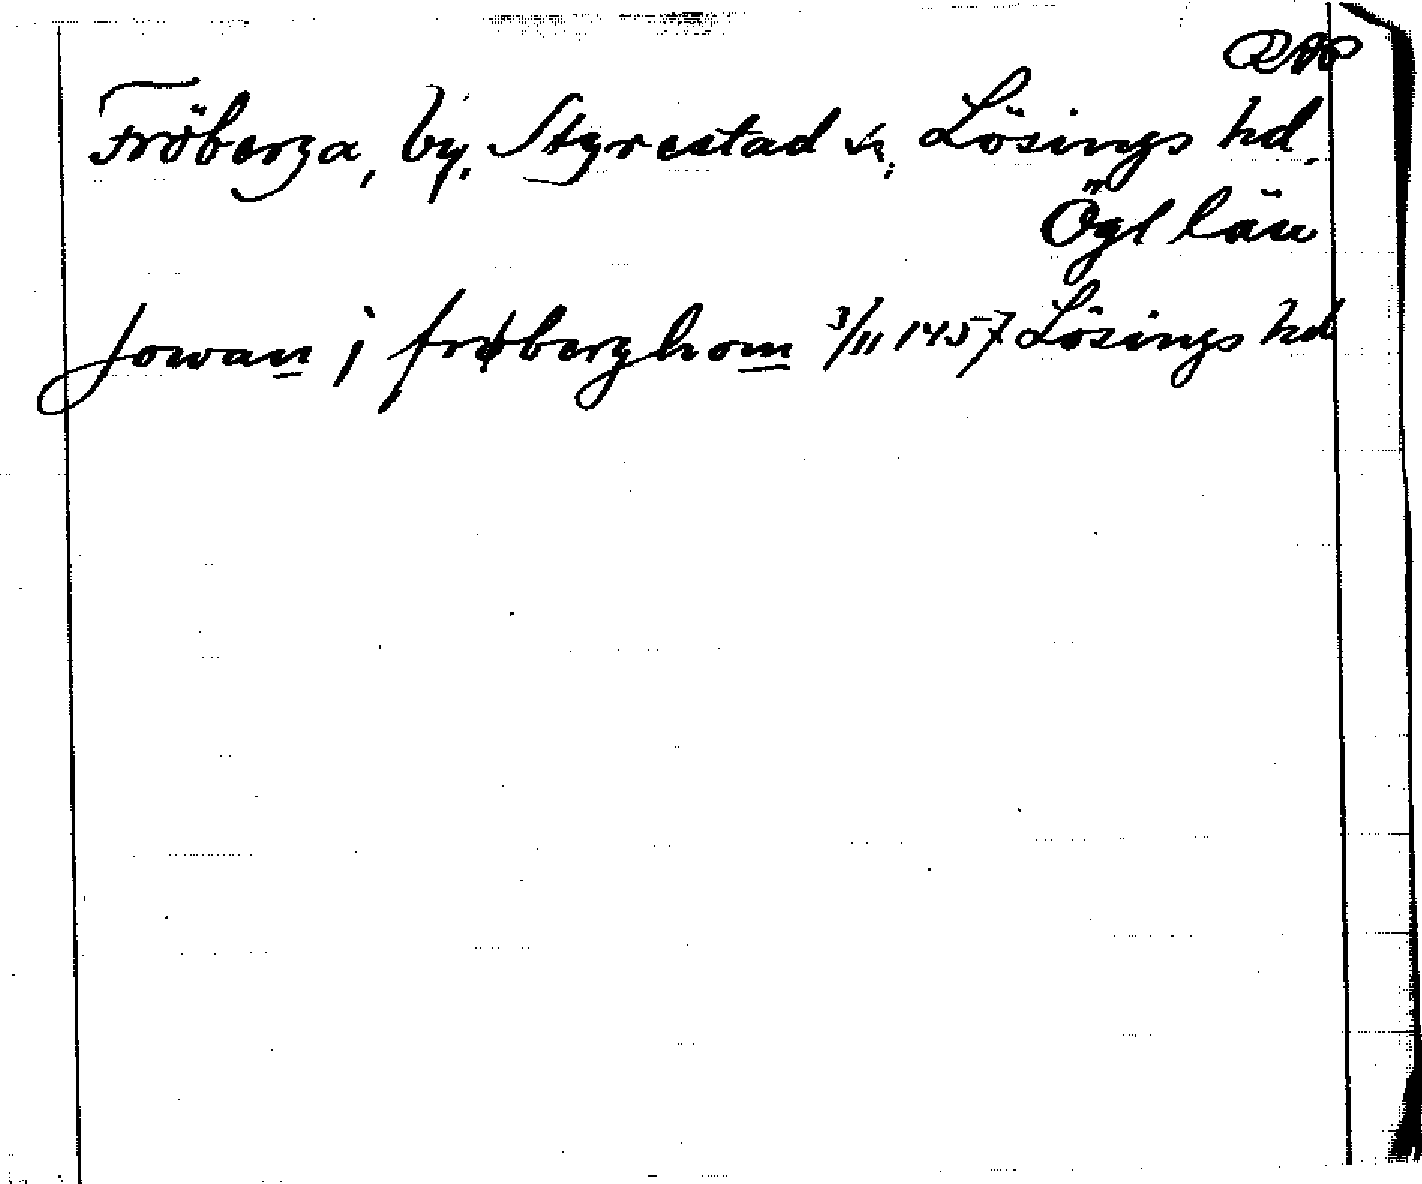 RAP
Fröberga, by. Styrestad sn. Lösings hd.
Ögl län
Jowan j frøberghom 3/11 1457 Lösings hd